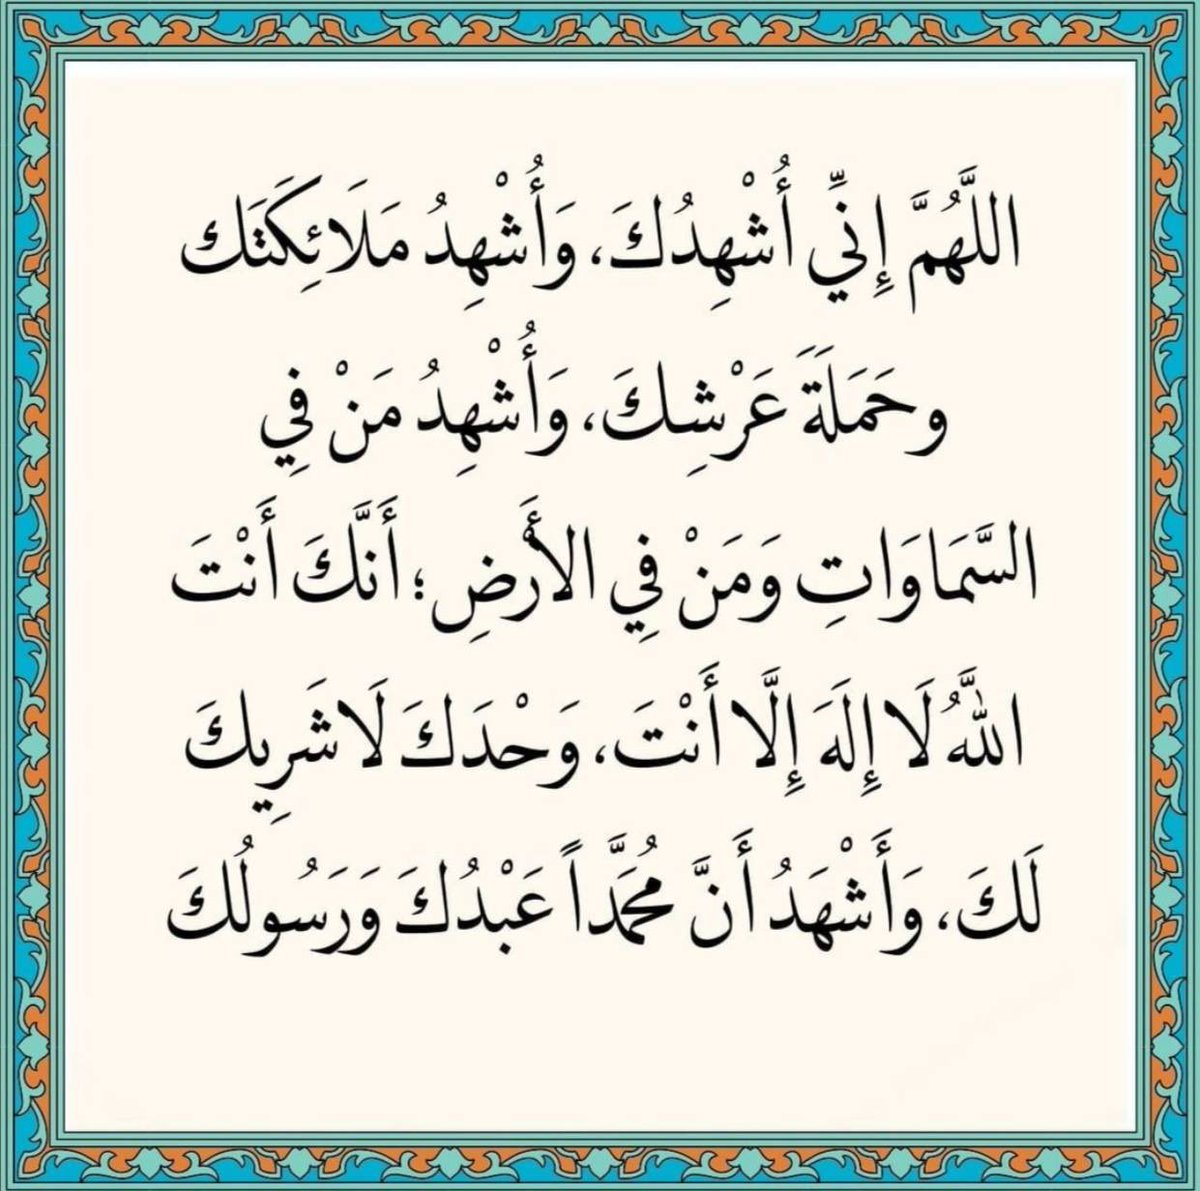 اللَّهُمَّ إِنِّي أُشْهِدُكَ، وَأُشْهِدُ مَلَائِكَتَكَ
وحَمَلَةَ عَرْشِكَ، وَأُشْهِدُ مَنْ فِي
السَّمَاوَاتِ وَمَنْ فِي الأَرْضِ؛ أَنَّكَ أَنْتَ
اللَّهُ لَا إِلَهَ إِلَّا أَنْتَ، وَحْدَكَ لَا شَرِيكَ
لَكَ، وَأَشْهَدُ أَنَّ مُحَمَّداً عَبْدُكَ وَرَسُولُكَ